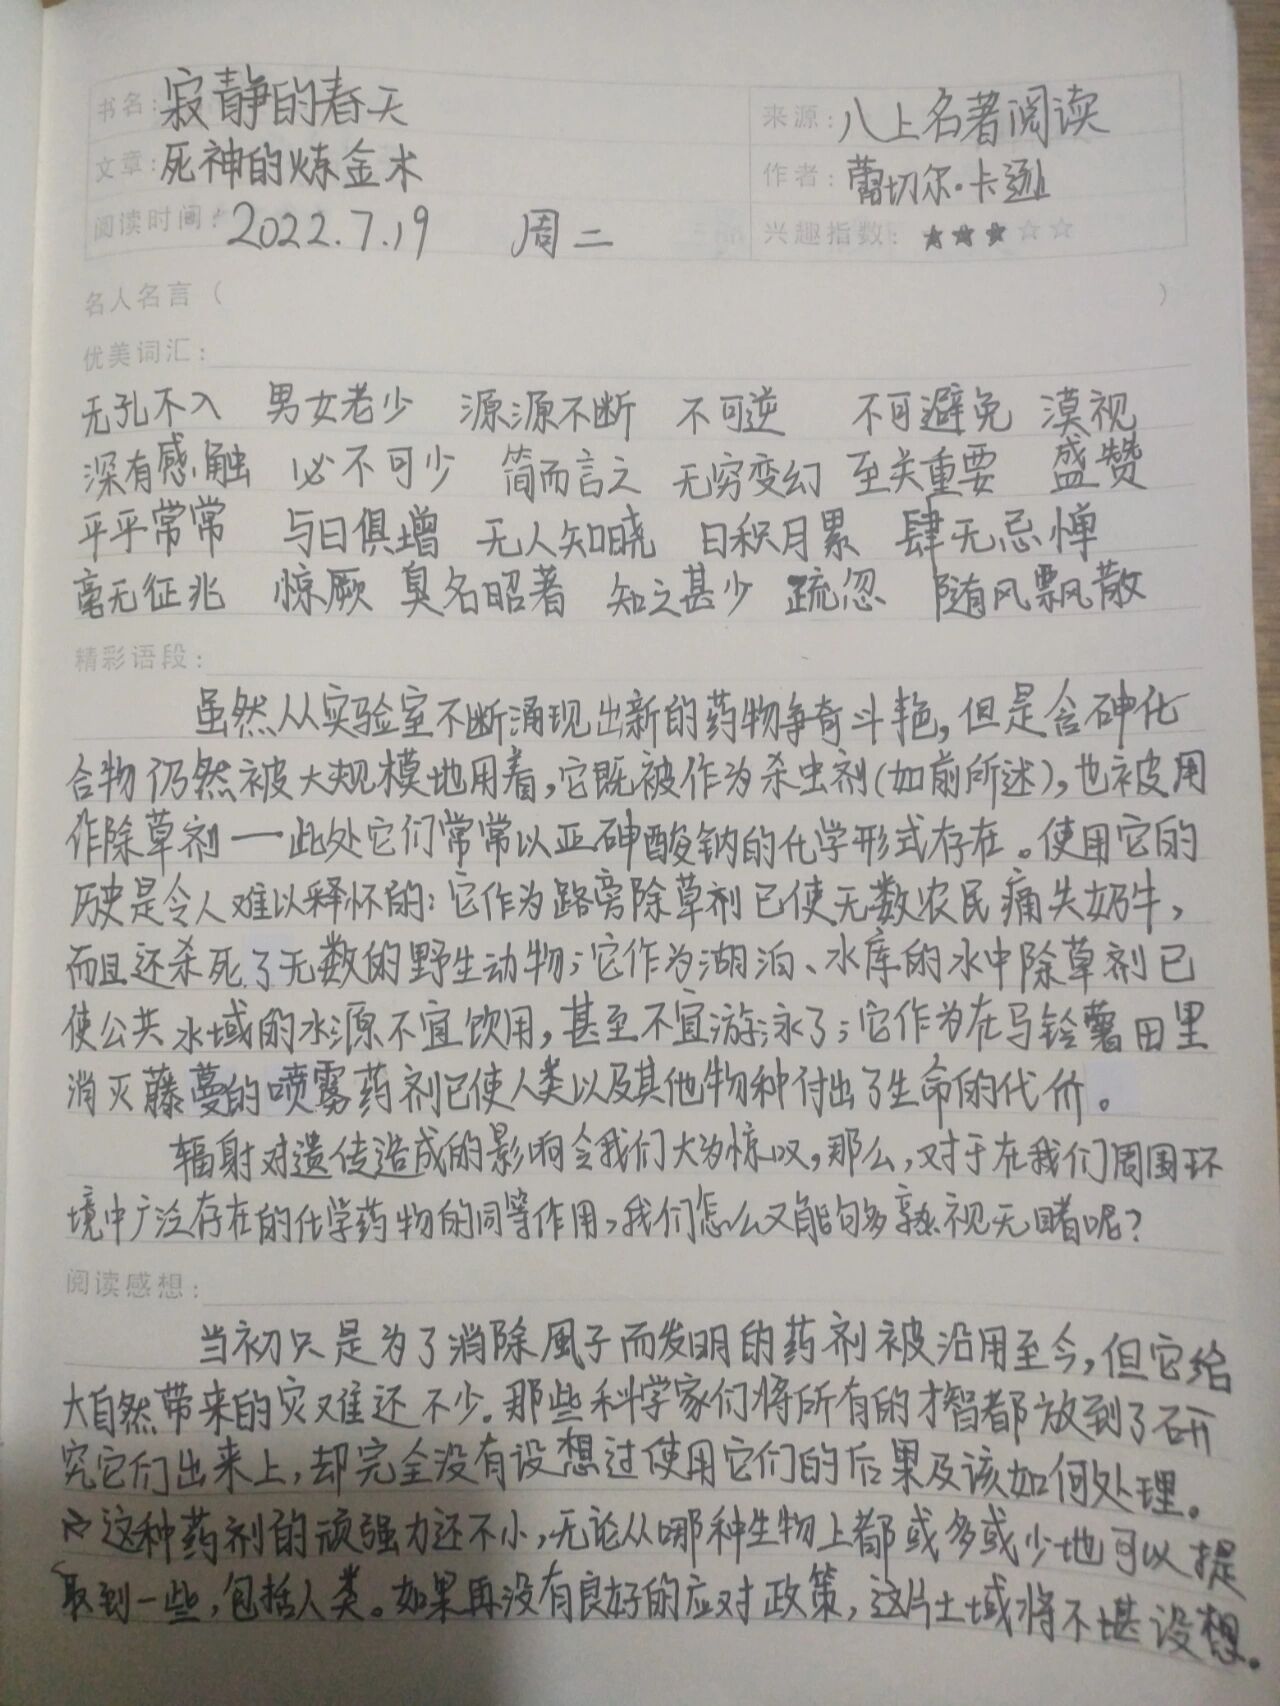 书名: 寂静的春天
来源: 八上名著阅读
文章: 死神的炼金术
作者: 蕾切尔·卡逊
阅读时间: 2022.7.19 周二
兴趣指数: ★★★☆☆
名人名言( )
优美词汇:
无孔不入 男女老少 源源不断 不可逆 不可避免 漠视
深有感触 必不可少 简而言之 无穷变幻 至关重要 盛赞
平平常常 与日俱增 无人知晓 日积月累 肆无忌惮
毫无征兆 惊厥 臭名昭著 知之甚少 疏忽 随风飘散
精彩语段:
虽然从实验室不断涌现出新的药物争奇斗艳,但是含砷化
合物仍然被大规模地用着,它既被作为杀虫剂(如前所述),也被用
作除草剂一此处它们常常以亚砷酸钠的化学形式存在。使用它的
历史是令人难以释怀的:它作为路旁除草剂已使无数农民痛失奶牛,
而且还杀死了无数的野生动物;它作为湖泊、水库的水中除草剂已
使公共水域的水源不宜饮用,甚至不宜游泳了;它作为在马铃薯田里
消灭藤蔓的喷雾药剂已使人类以及其他物种付出了生命的代价。
辐射对遗传造成的影响令我们大为惊叹,那么,对于在我们周围环
境中广泛存在的化学药物的同等作用,我们怎么又能够熟视无睹呢?
阅读感想:
当初只是为了消除風子而发明的药剂被沿用至今,但它给
大自然带来的灾难还不少。那些科学家们将所有的才智都放到了研
究它们出来上,却完全没有设想过使用它们的后果及该如何处理。
这种药剂的顽强力还不小,无论从哪种生物上都或多或少地可以提
取到一些,包括人类。如果再没有良好的应对政策,这片土域将不堪设想。